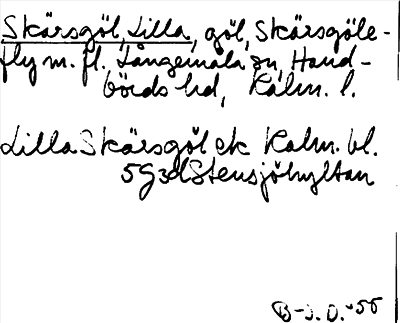 Skärsgöl, Lilla, göl, Skärsgöle-
fly m. fl. Långemåla sn, Hand-
börds hd, Kalm. l.
Lilla Skärsgöl ek Kalm. bl.
5G3d Stensjöhyltan
B-J.O. -55